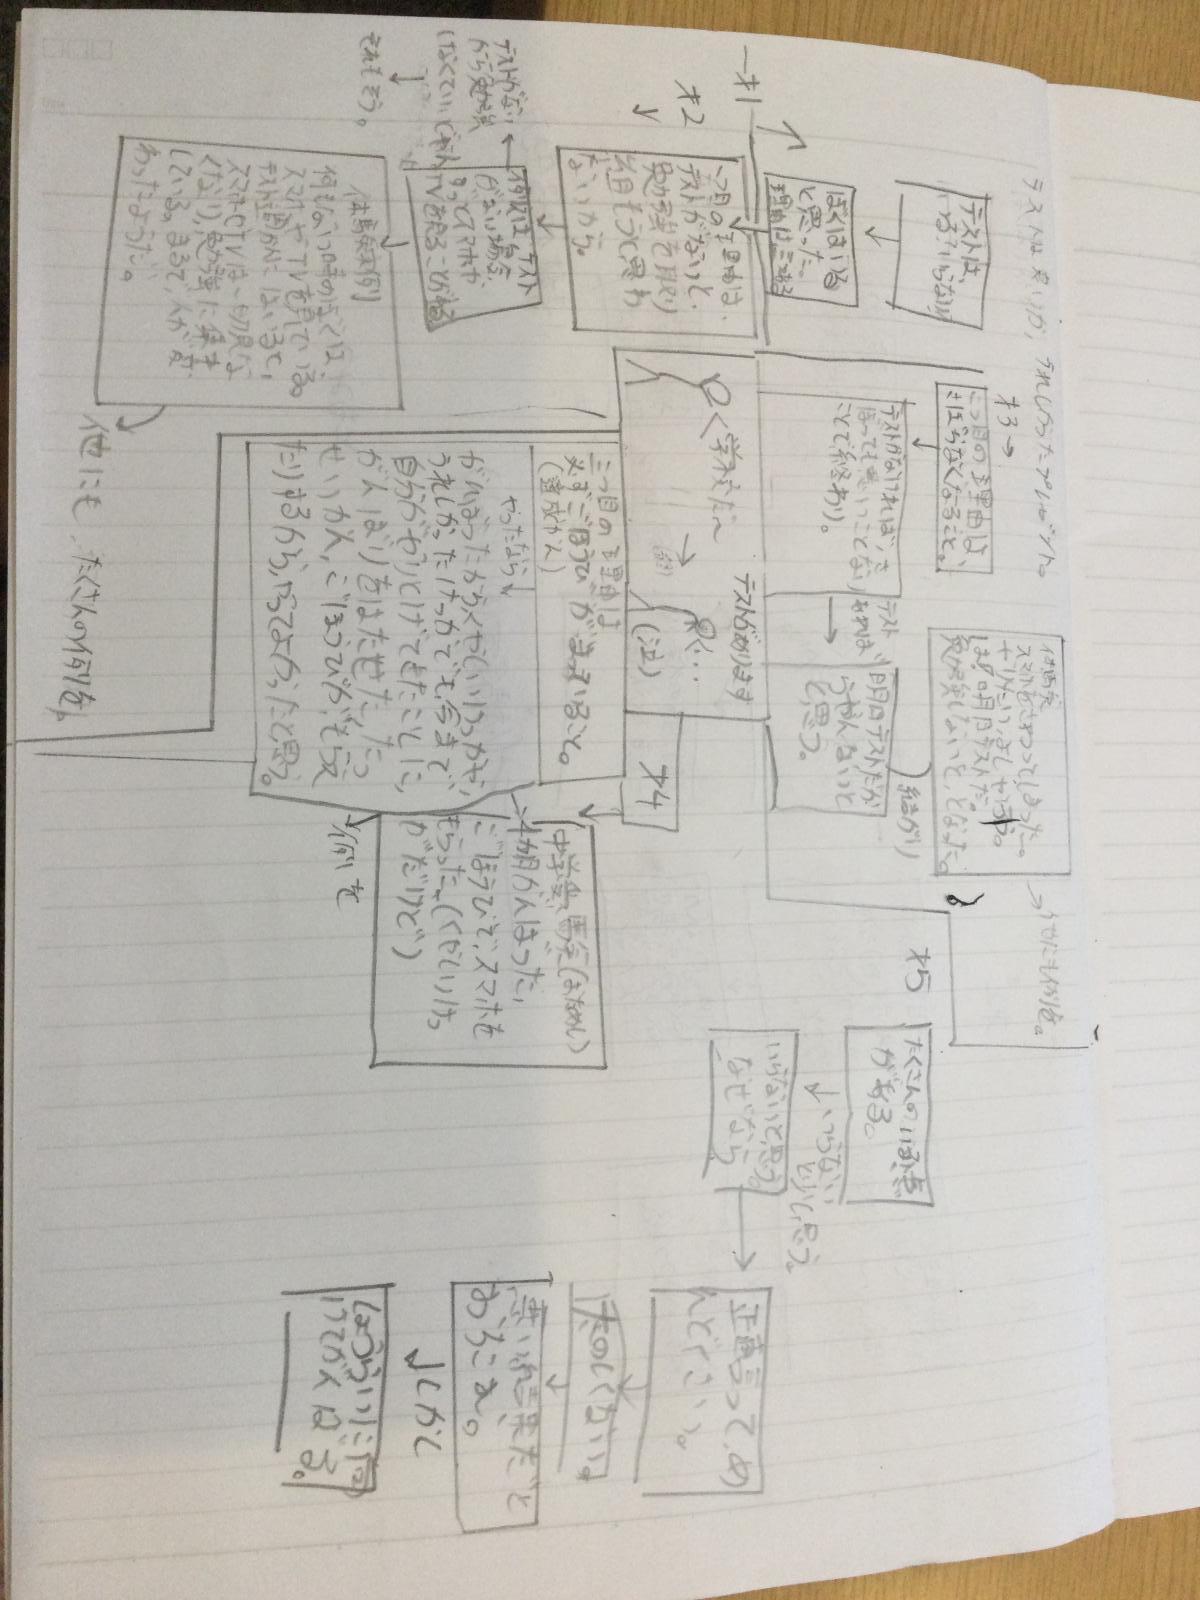 テストは良いか、
テストは、
いる？いらない？
才1
ぼくはいる
と思った。
理由は三つある
才2
一つ目の理由は、
テストがないと、
勉強を取り
組もうと思わ
ないから。
例えば、テスト
がない場合
TVを見ることがある
テストがない
から勉強
それもそう。
体験(例)
何もない時のぼくは、
スマホやTVを見ている。
テスト週かんにはいると、
スマホやTVは一切見な
くなり、勉強に集中
している。まるで、人が変
わったようだ。
他にも、たくさんの例を。
才3
二つ目の理由は、
さぼらなくなること。
テストがなければ、さ
ぼっても悪いことない
ことで終わり。
テスト
あれば
明日テストだか
らやんないと
と思う。
体験
スマホをさわってしまった。
勉強しないと、となった。
繋がり
→他にも例を。
く学校だ～
テストがあります
く…
(泣)
才4
三つ目の理由は
必ずごほうびがまっいること。
(達成かん)
やったなら
がんばったからくやしいけっかや、
うれしかったけっかでも、今まで
自分がやりとげてきたことに、
がんばりをはたせた、たっ
せいかん、ごほうびがもらえ
たりするから、やってよかったと思う。
例を
中学受馬台(はなかし)
4か月がんばった、
ごほうびで、スマホを
もらった。(くやしいけっ
かだけど)
才5
たくさんのいる派
がある。
いらない
いらないと思う。
なぜなら
正直言って、め
んどくさい。
たのしくない。
悪い結果だと
おちこむ。
しかし
ごほうびに向
けてがんばる。